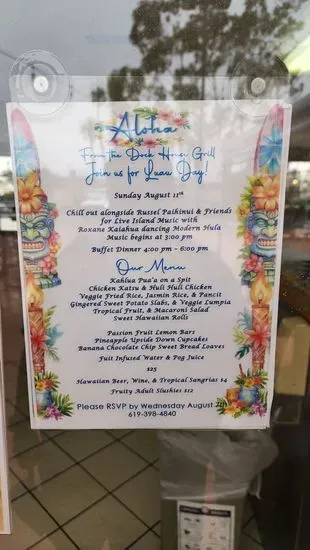 Aloha
From the Dock House Grill
Join us for Luau Day!
Sunday August 11th
Chill out alongside Russel Paihinui & Friends
for Live Island Music with
Roxane Kaiahua dancing Modern Hula
Music begins at 3:00 pm
Buffet Dinner 4:00 pm - 6:00 pm
Our Menu
Kahlua Pua'a on a Spit
Chicken Katsu & Huli Huli Chicken
Veggie Fried Rice, Jasmin Rice, & Pancit
Gingered Sweet Potato Slabs, & Veggie Lumpia
Tropical Fruit, & Macaroni Salad
Sweet Hawaiian Rolls
Passion Fruit Lemon Bars
Pineapple Upside Down Cupcakes
Banana Chocolate Chip Sweet Bread Loaves
Fuit Infused Water & Pog Juice
$25
Hawaiian Beer, Wine, & Tropical Sangrias $4
Fruity Adult Slushies $12
Please RSVP by Wednesday August
619-398-4840